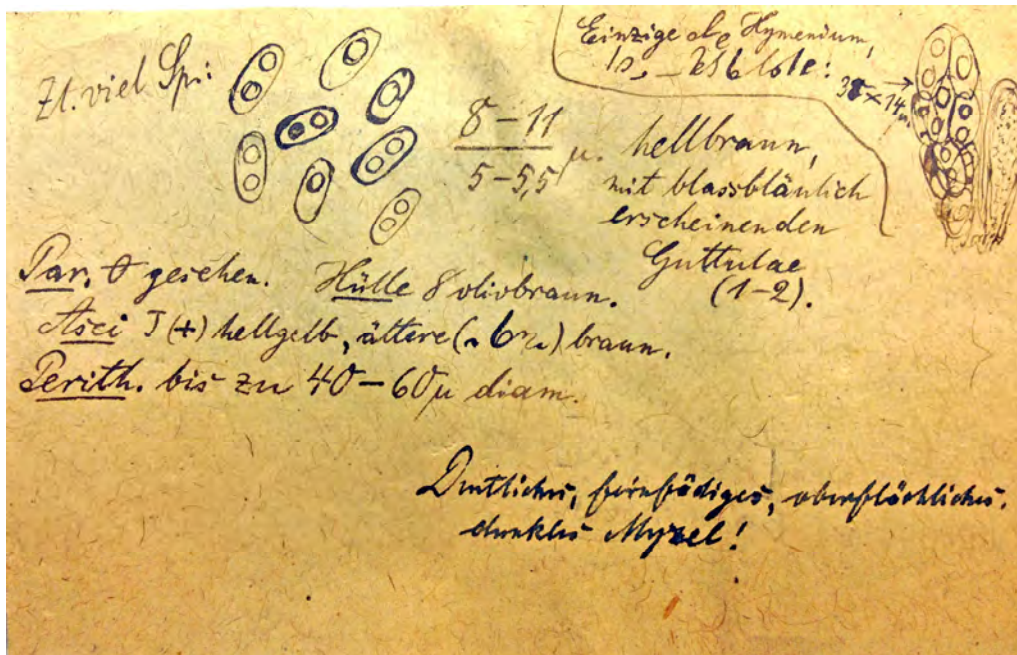 Zt. viel Sp.:
8–11
5–5,5 µ. hellbraun,
mit blassbläulich
erscheinenden
Guttulae
(1–2).
Einzige Hymenium,
38 × 14 µ.
Par. θ gesehen. Hülle olivbraun.
Asci J (+) hellgelb, ältere braun.
Perith. bis zu 40–60µ diam.
Deutliches, feinfädiges, oberflächliches,
dunkles Myzel!